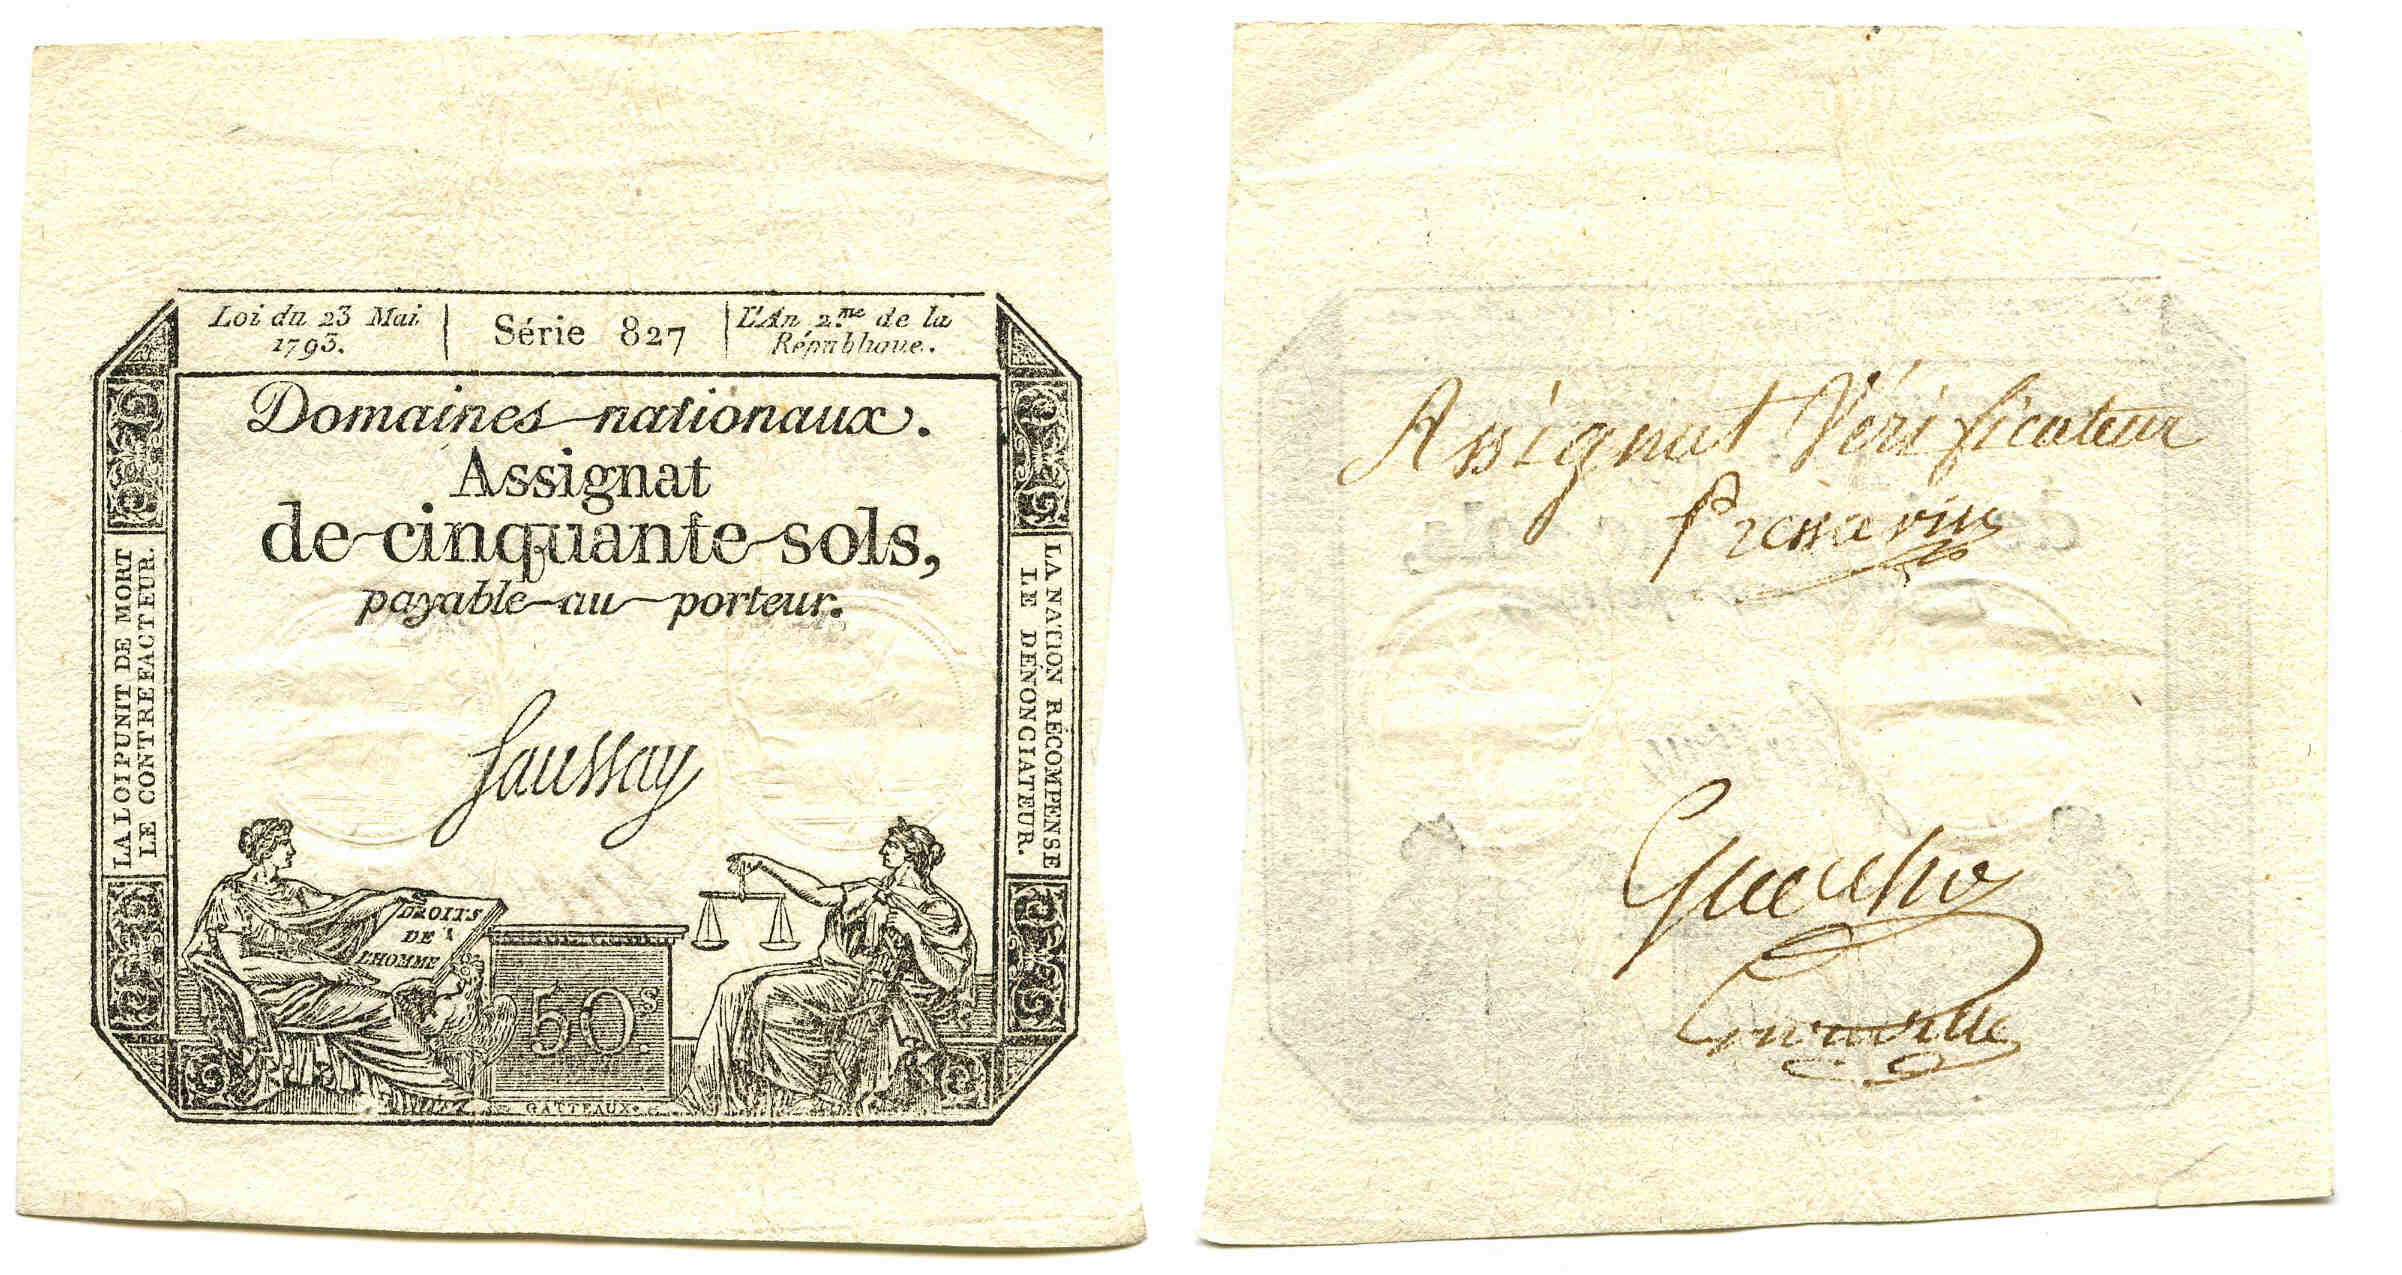 Loi du 23 Mai
1793.
Série 827
L'An 2.me de la
République.
Domaines nationaux.
Assignat
de cinquante sols,
payable au porteur.
LA LOI PUNIT DE MORT
LE CONTREFACTEUR.
LA NATION RÉCOMPENSE
LE DÉNONCIATEUR.
Saussay
DROITS
DE
L'HOMME
50S.
GATTEAUX.
Assignat Vérificateur
Pressavin